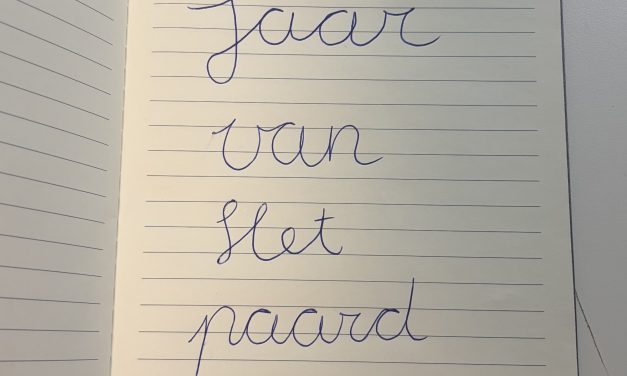 Jaar
van
Het
paard